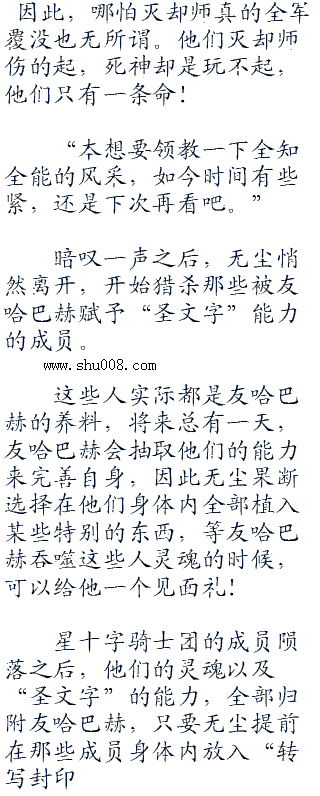 因此，哪怕灭却师真的全军
覆没也无所谓。他们灭却师
伤的起，死神却是玩不起，
他们只有一条命！
“本想要领教一下全知
全能的风采，如今时间有些
紧，还是下次再看吧。”
暗叹一声之后，无尘悄
然离开，开始猎杀那些被友
哈巴赫赋予“圣文字”能力
的成员。
www.shu008.com
这些人实际都是友哈巴
赫的养料，将来总有一天，
友哈巴赫会抽取他们的能力
来完善自身，因此无尘果断
选择在他们身体内全部植入
某些特别的东西，等友哈巴
赫吞噬这些人灵魂的时候，
可以给他一个见面礼！
星十字骑士团的成员陨
落之后，他们的灵魂以及
“圣文字”的能力，全部归
附友哈巴赫，只要无尘提前
在那些成员身体内放入“转
写封印